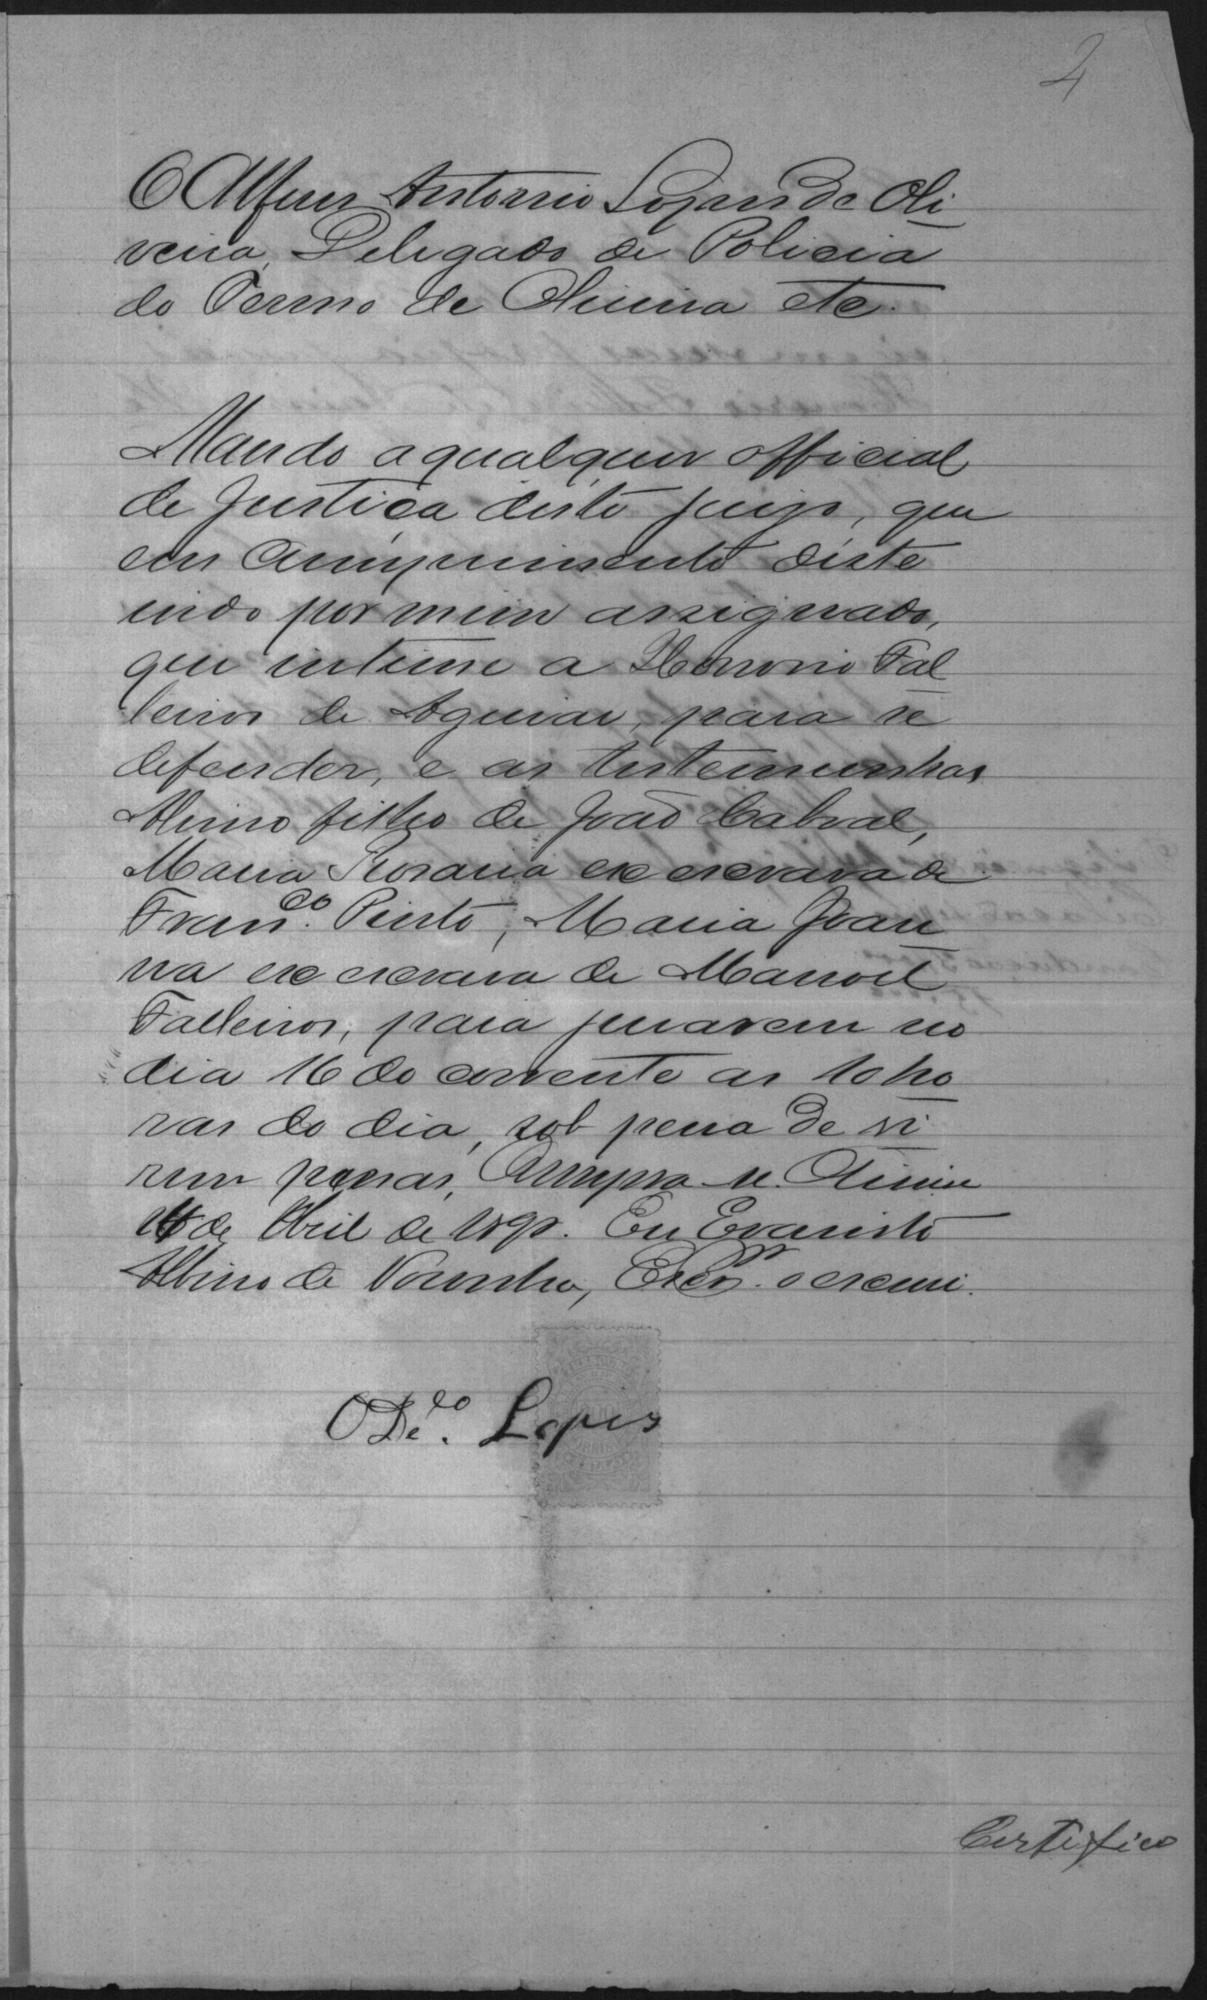 2
O Alferes Antonio Lopes de Oli
veira, Delegado de Policia
do Termo de Oliveira etc.
Mando a qualquer official
de Justiça deste juizo, que
em cumprimento deste
indo por mim assignado,
que intime a Honorio Fal
leiros de Aguiar, para se
defender, e as testemunhas
filho de João Cabral,
Maria Rosaria ex escrava de
Franco. Pinto, Maria Joan
na ex escrava de Manoel
Falleiros, para jurarem no
dia 16 do corrente as 10 ho
ras do dia, sob pena de
Cumpra-se. Oliveira
de Abril de 189. Eu Evaristo
Albino de Noronha, Escrm. o escrevi.
O Dedo. Lopes
Certifico